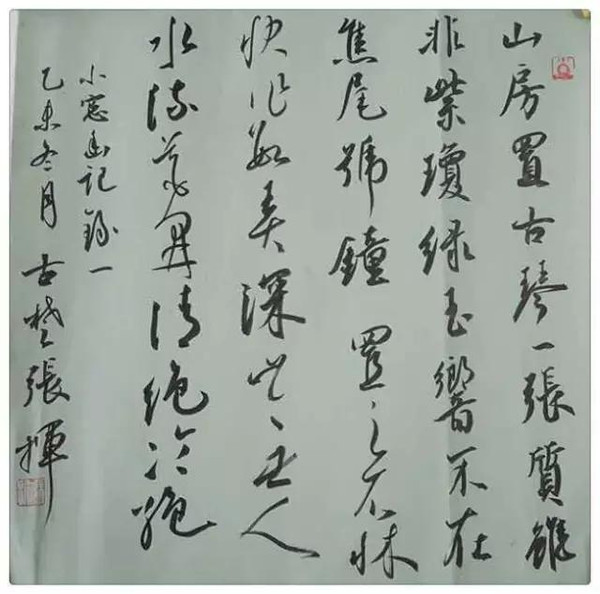 山房置古琴一張質雖
非紫瓊綠玉響不在
焦尾號鐘置之石床
快作數弄深山無人
水流花開清絕冷絕
小窓幽記錄一
乙未冬月古楚張揮